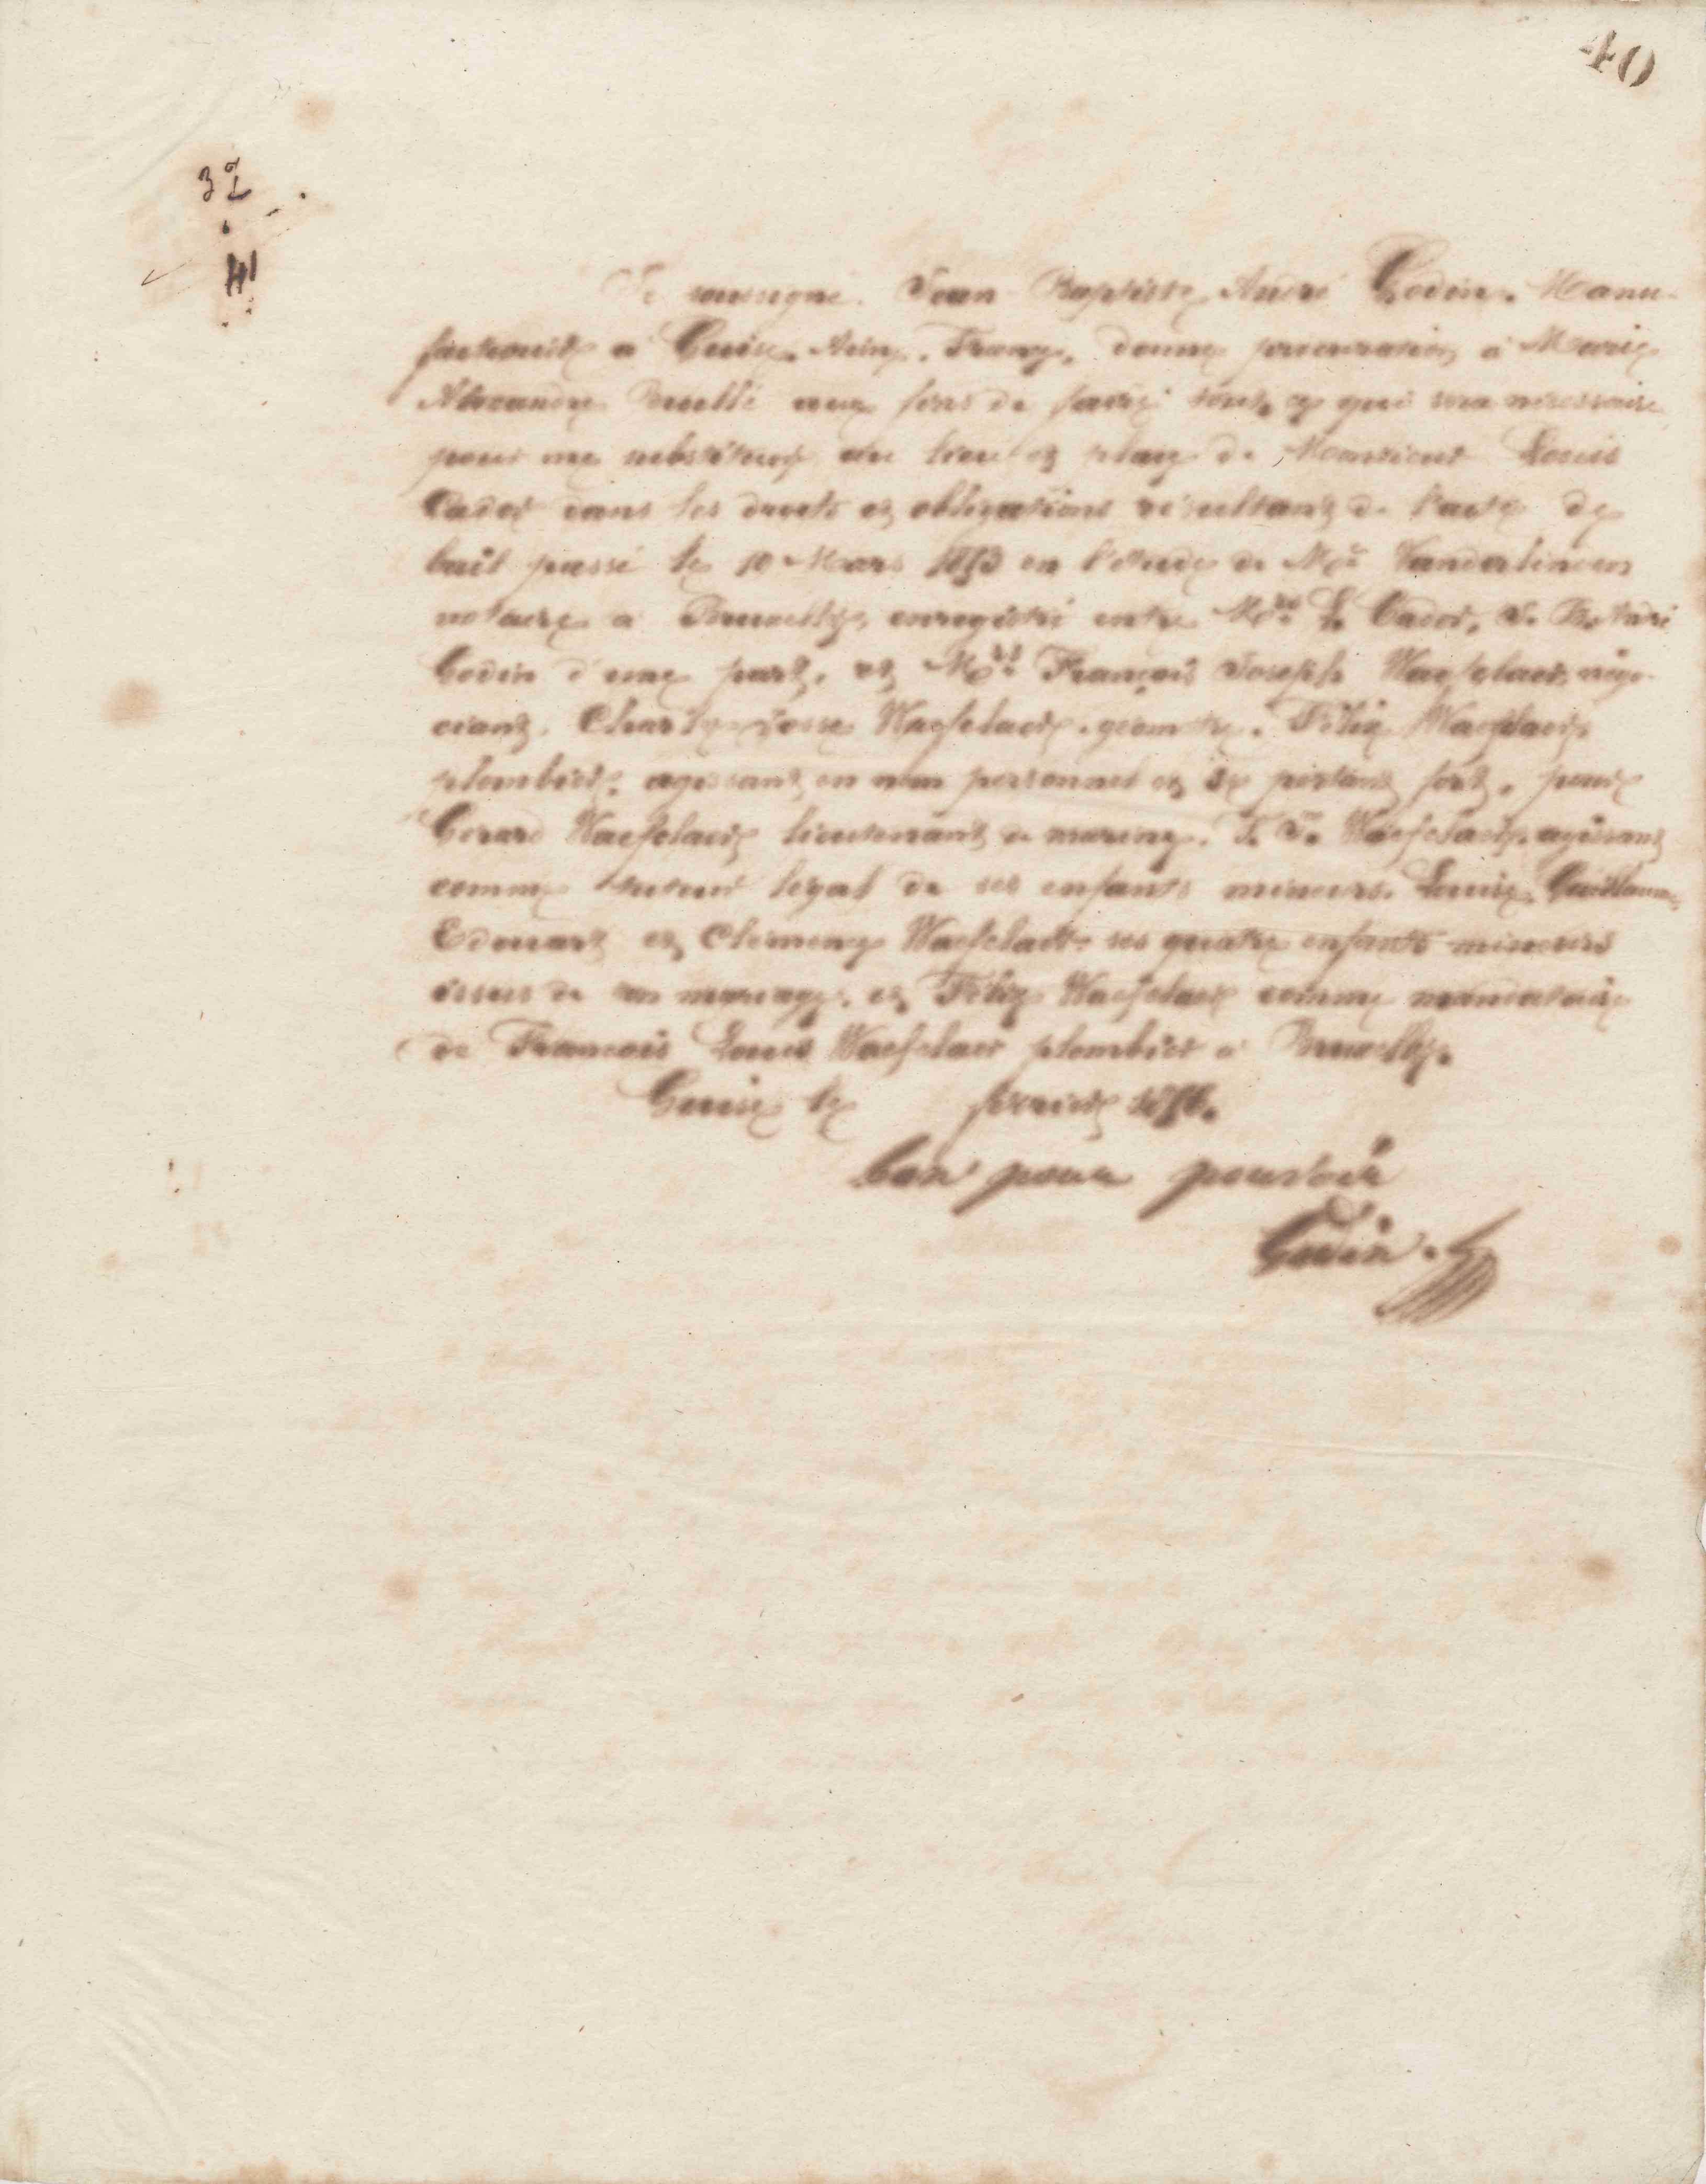 40
32
41
Je soussigné Jean Baptiste André Godin. Manu-
facturier à Guise. Aisne. France. donne procuration à Marie
Alexandre Brullé aux fins de faire tout ce qui sera nécessaire
pour me substituer au lieu et place de Monsieur Louis
Cador dans les droits et obligations résultant de l'acte de
bail passé le 10 Mars 1853 en l'étude de Me Vanderlinden
notaire à Bruxelles, enregistré entre Mrs L. Cador,
Godin d'une part, et Mrs François Joseph Waefelaer, négo-
ciant. Charles Josse Waefelaer. géomètre. Félix Waefelaer
plombier. agissant en nom personnel et se portant fort. pour
Gérard Waefelaer lieutenant de marine. Waefelaer agissant
comme tuteur légal de ses enfants mineurs. Louise. Guillaume
Edouard et Clémence Waefelaer ses quatre enfants mineurs
issus de son mariage. et Félix Waefelaer comme mandataire
de François Louis Waefelaer plombier à Bruxelles.
Guise le février
bon pour pouvoir
Godin